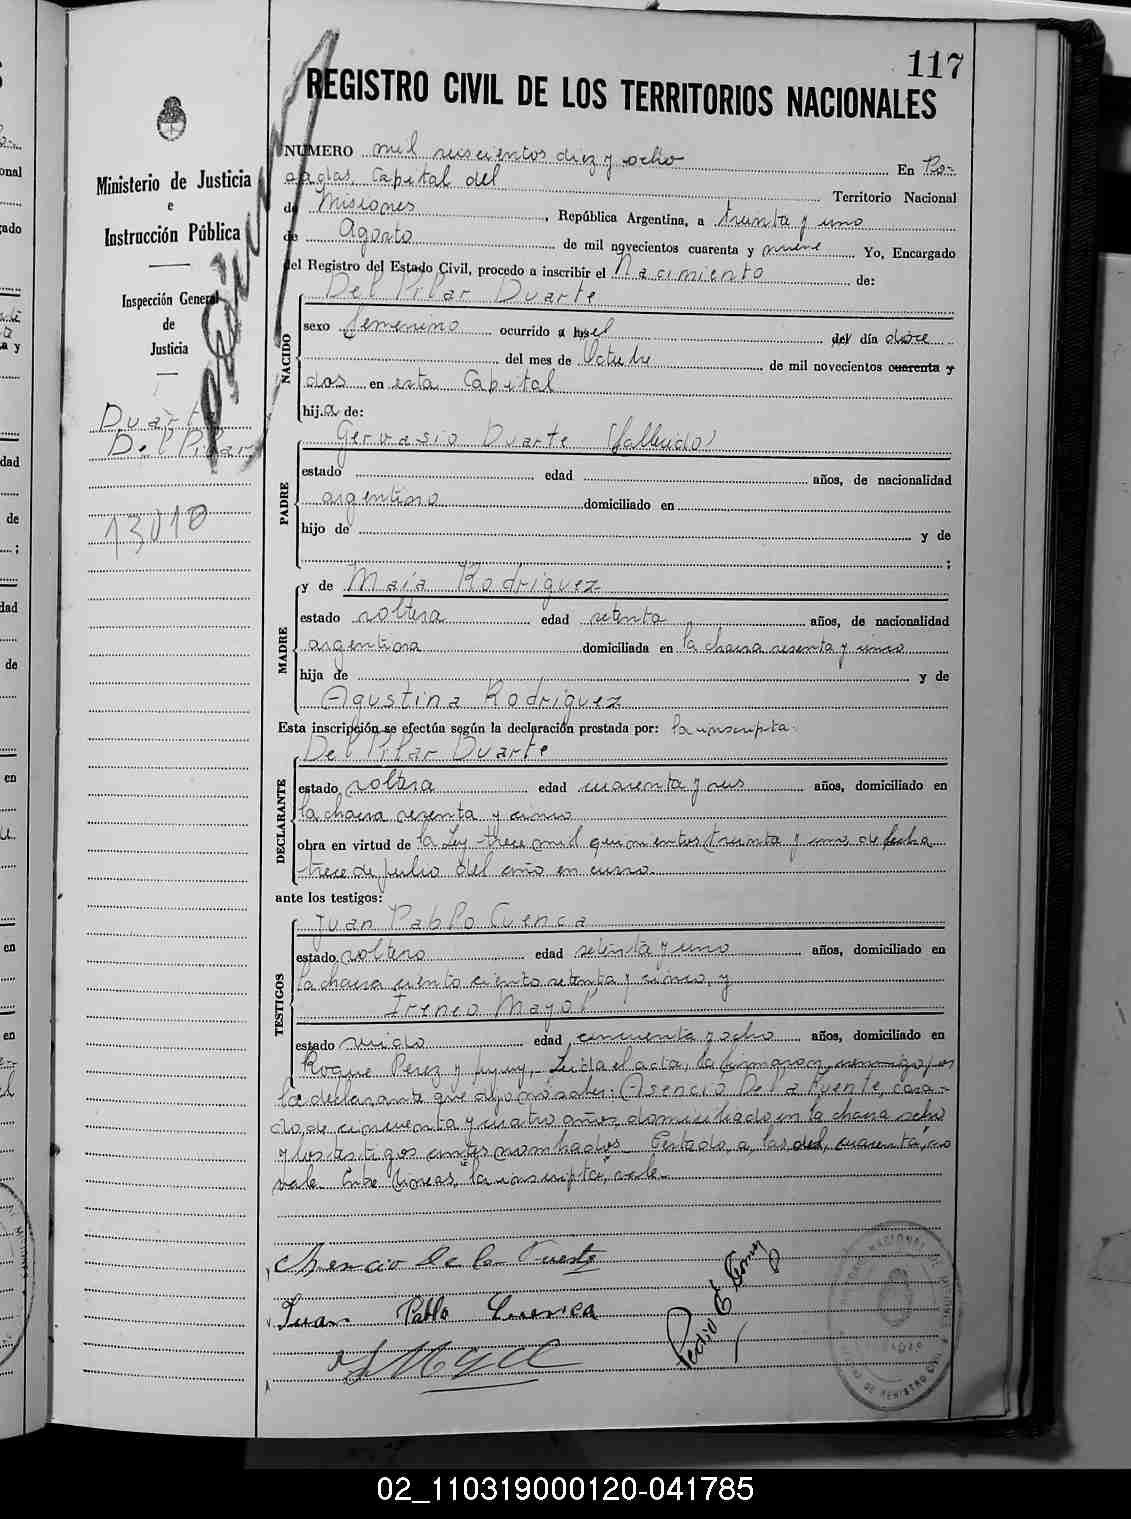 117
REGISTRO CIVIL DE LOS TERRITORIOS NACIONALES
Ministerio de Justicia
e
Instrucción Pública
Inspección General
de
Justicia
Duarte
Del Pilar
13010
NUMERO mil seiscientos diez y ocho En Po-
sadas, Capital del Territorio Nacional
de Misiones, República Argentina, a treinta y uno
de Agosto de mil novecientos cuarenta y nueve Yo, Encargado
del Registro del Estado Civil, procedo a inscribir el Nacimiento de:
NACIDO
Del Pilar Duarte
sexo femenino ocurrido a las el del día doce
del mes de Octubre de mil novecientos cuarenta y
dos en esta Capital
hija de:
PADRE
Gervasio Duarte (fallecido)
estado edad años, de nacionalidad
argentino domiciliado en
hijo de y de
;
MADRE
y de Maía Rodriguez
estado soltera edad setenta años, de nacionalidad
argentina domiciliada en la chacra sesenta y cinco
hija de y de
Agustina Rodriguez
Esta inscripción se efectúa según la declaración prestada por: la inscripta
DECLARANTE
Del Pilar Duarte
estado soltera edad cuarenta y seis años, domiciliado en
la chacra sesenta y cinco
obra en virtud de la Ley trece mil quinientos treinta y uno de fecha
trece de julio del año en curso.
ante los testigos:
TESTIGOS
Juan Pablo Cuenca
estado soltero edad setenta y uno años, domiciliado en
la chacra ciento ciento setenta y cinco, y
Ireneo Mayol
estado viudo edad cincuenta y ocho años, domiciliado en
Roque Perez y Jujuy,- Leida el acta, la firmaron conmigo por
la declarante que dijo no saber: Asencio De la Fuente, casa-
do, de cincuenta y cuatro años, domiciliado en la chacra ocho
y los testigos antes nombrados. Testado, a, las, del, cuarenta, no
vale. Entre líneas, "la inscripta", vale.-
Asencio de la Fuente
Juan Pablo Cuenca
02_110319000120-041785